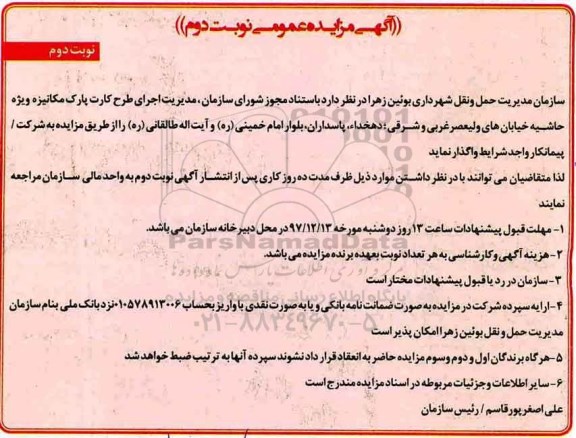 ((آگهی مزایده عمومی نوبت دوم))
نوبت دوم
سازمان مدیریت حمل ونقل شهرداری بوئین زهرا در نظر دارد باستناد مجوز شورای سازمان ، مدیریت اجرای طرح کارت پارک مکانیزه ویژه
حاشیه خیابان های ولیعصر غربی و شرقی؛ دهخداء، پاسداران، بلوار امام خمینی (ره) و آیت اله طالقانی (ره) را از طریق مزایده به شرکت /
پیمانکار واجد شرایط واگذار نماید
لذا متقاضیان می توانند با در نظر داشتن موارد ذیل ظرف مدت ده روز کاری پس از انتشار آگهی نوبت دوم به واحد مالی سازمان مراجعه
نمایند
۱- مهلت قبول پیشنهادات ساعت ۱۳ روز دوشنبه مورخه ۹۷/۱۲/۱۳ در محل دبیرخانه سازمان می باشد.
ParsNamadData
۲- هزینه آگهی و کارشناسی به هر تعداد نوبت بعهده برنده مزایده می باشد.
۳- سازمان در رد یا قبول پیشنهادات مختار است
۴- ارایه سپرده شرکت در مزایده به صورت ضمانت نامه بانکی و یا به صورت نقدی با واریز بحساب ۰۱۰۵۷۸۹۱۳۰۰۶ نزد بانک ملی بنام سازمان
۰۲۱-۸۸۳۴۹۶۷۰-۵
مدیریت حمل و نقل بوئین زهرا امکان پذیر است
۵- هر گاه برندگان اول و دوم وسوم مزایده حاضر به انعقاد قرار داد نشوند سپرده آنها به ترتیب ضبط خواهد شد
۶- سایر اطلاعات و جزئیات مربوطه در اسناد مزایده مندرج است
علی اصغر پورقاسم / رئیس سازمان